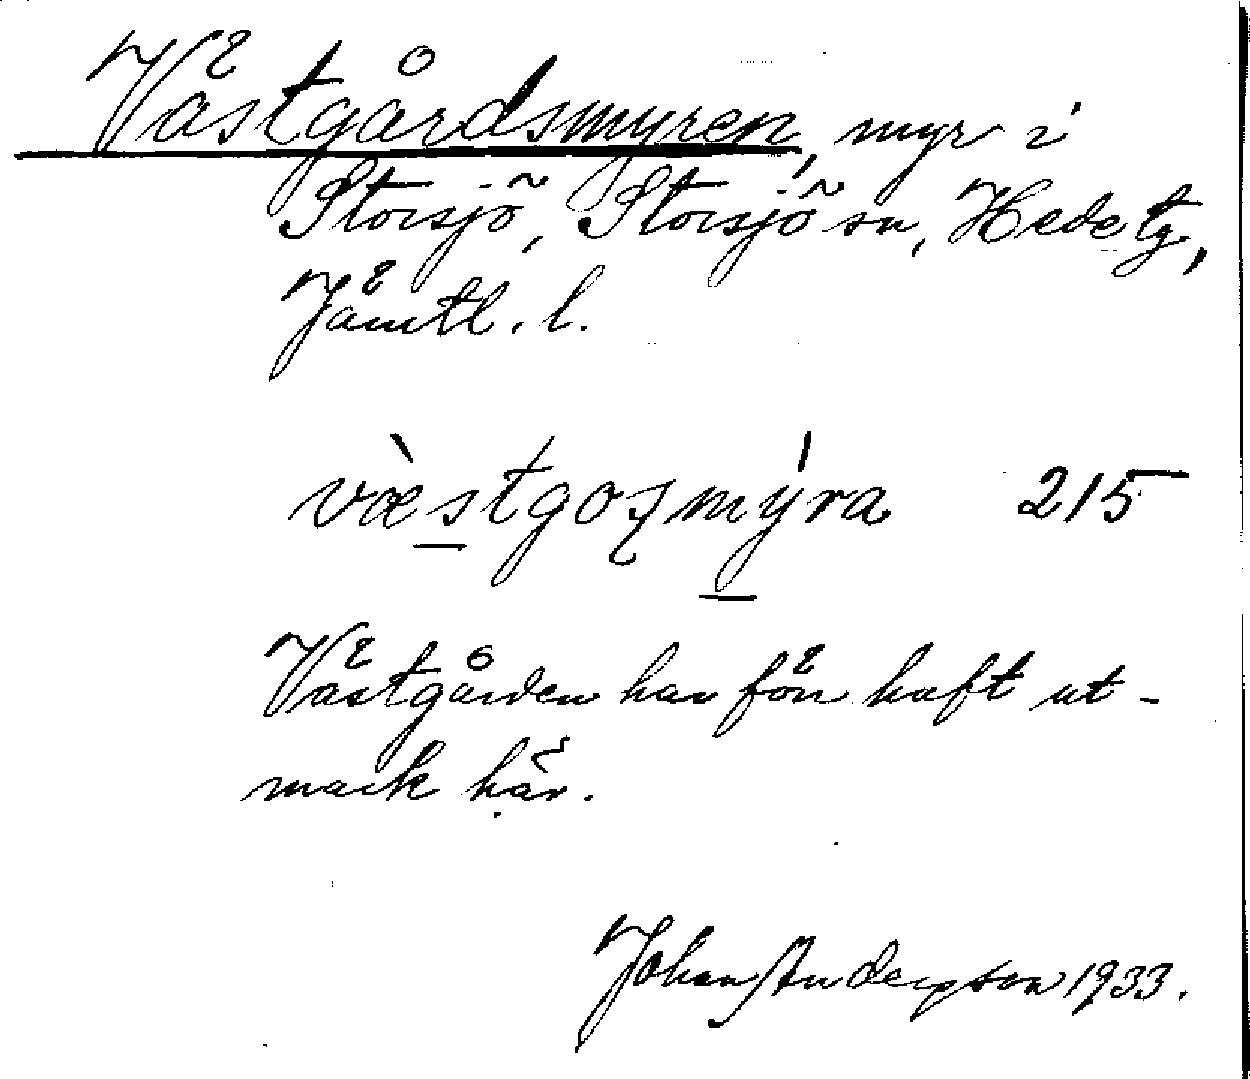 Västgårdsmyren, myr i
Storsjö, Storsjö sn, Hede tg,
Jämtl. l.
væ̀stgoʂmýra 215
Västgården har förr haft ut-
mark här.
Johan Andersson 1933.